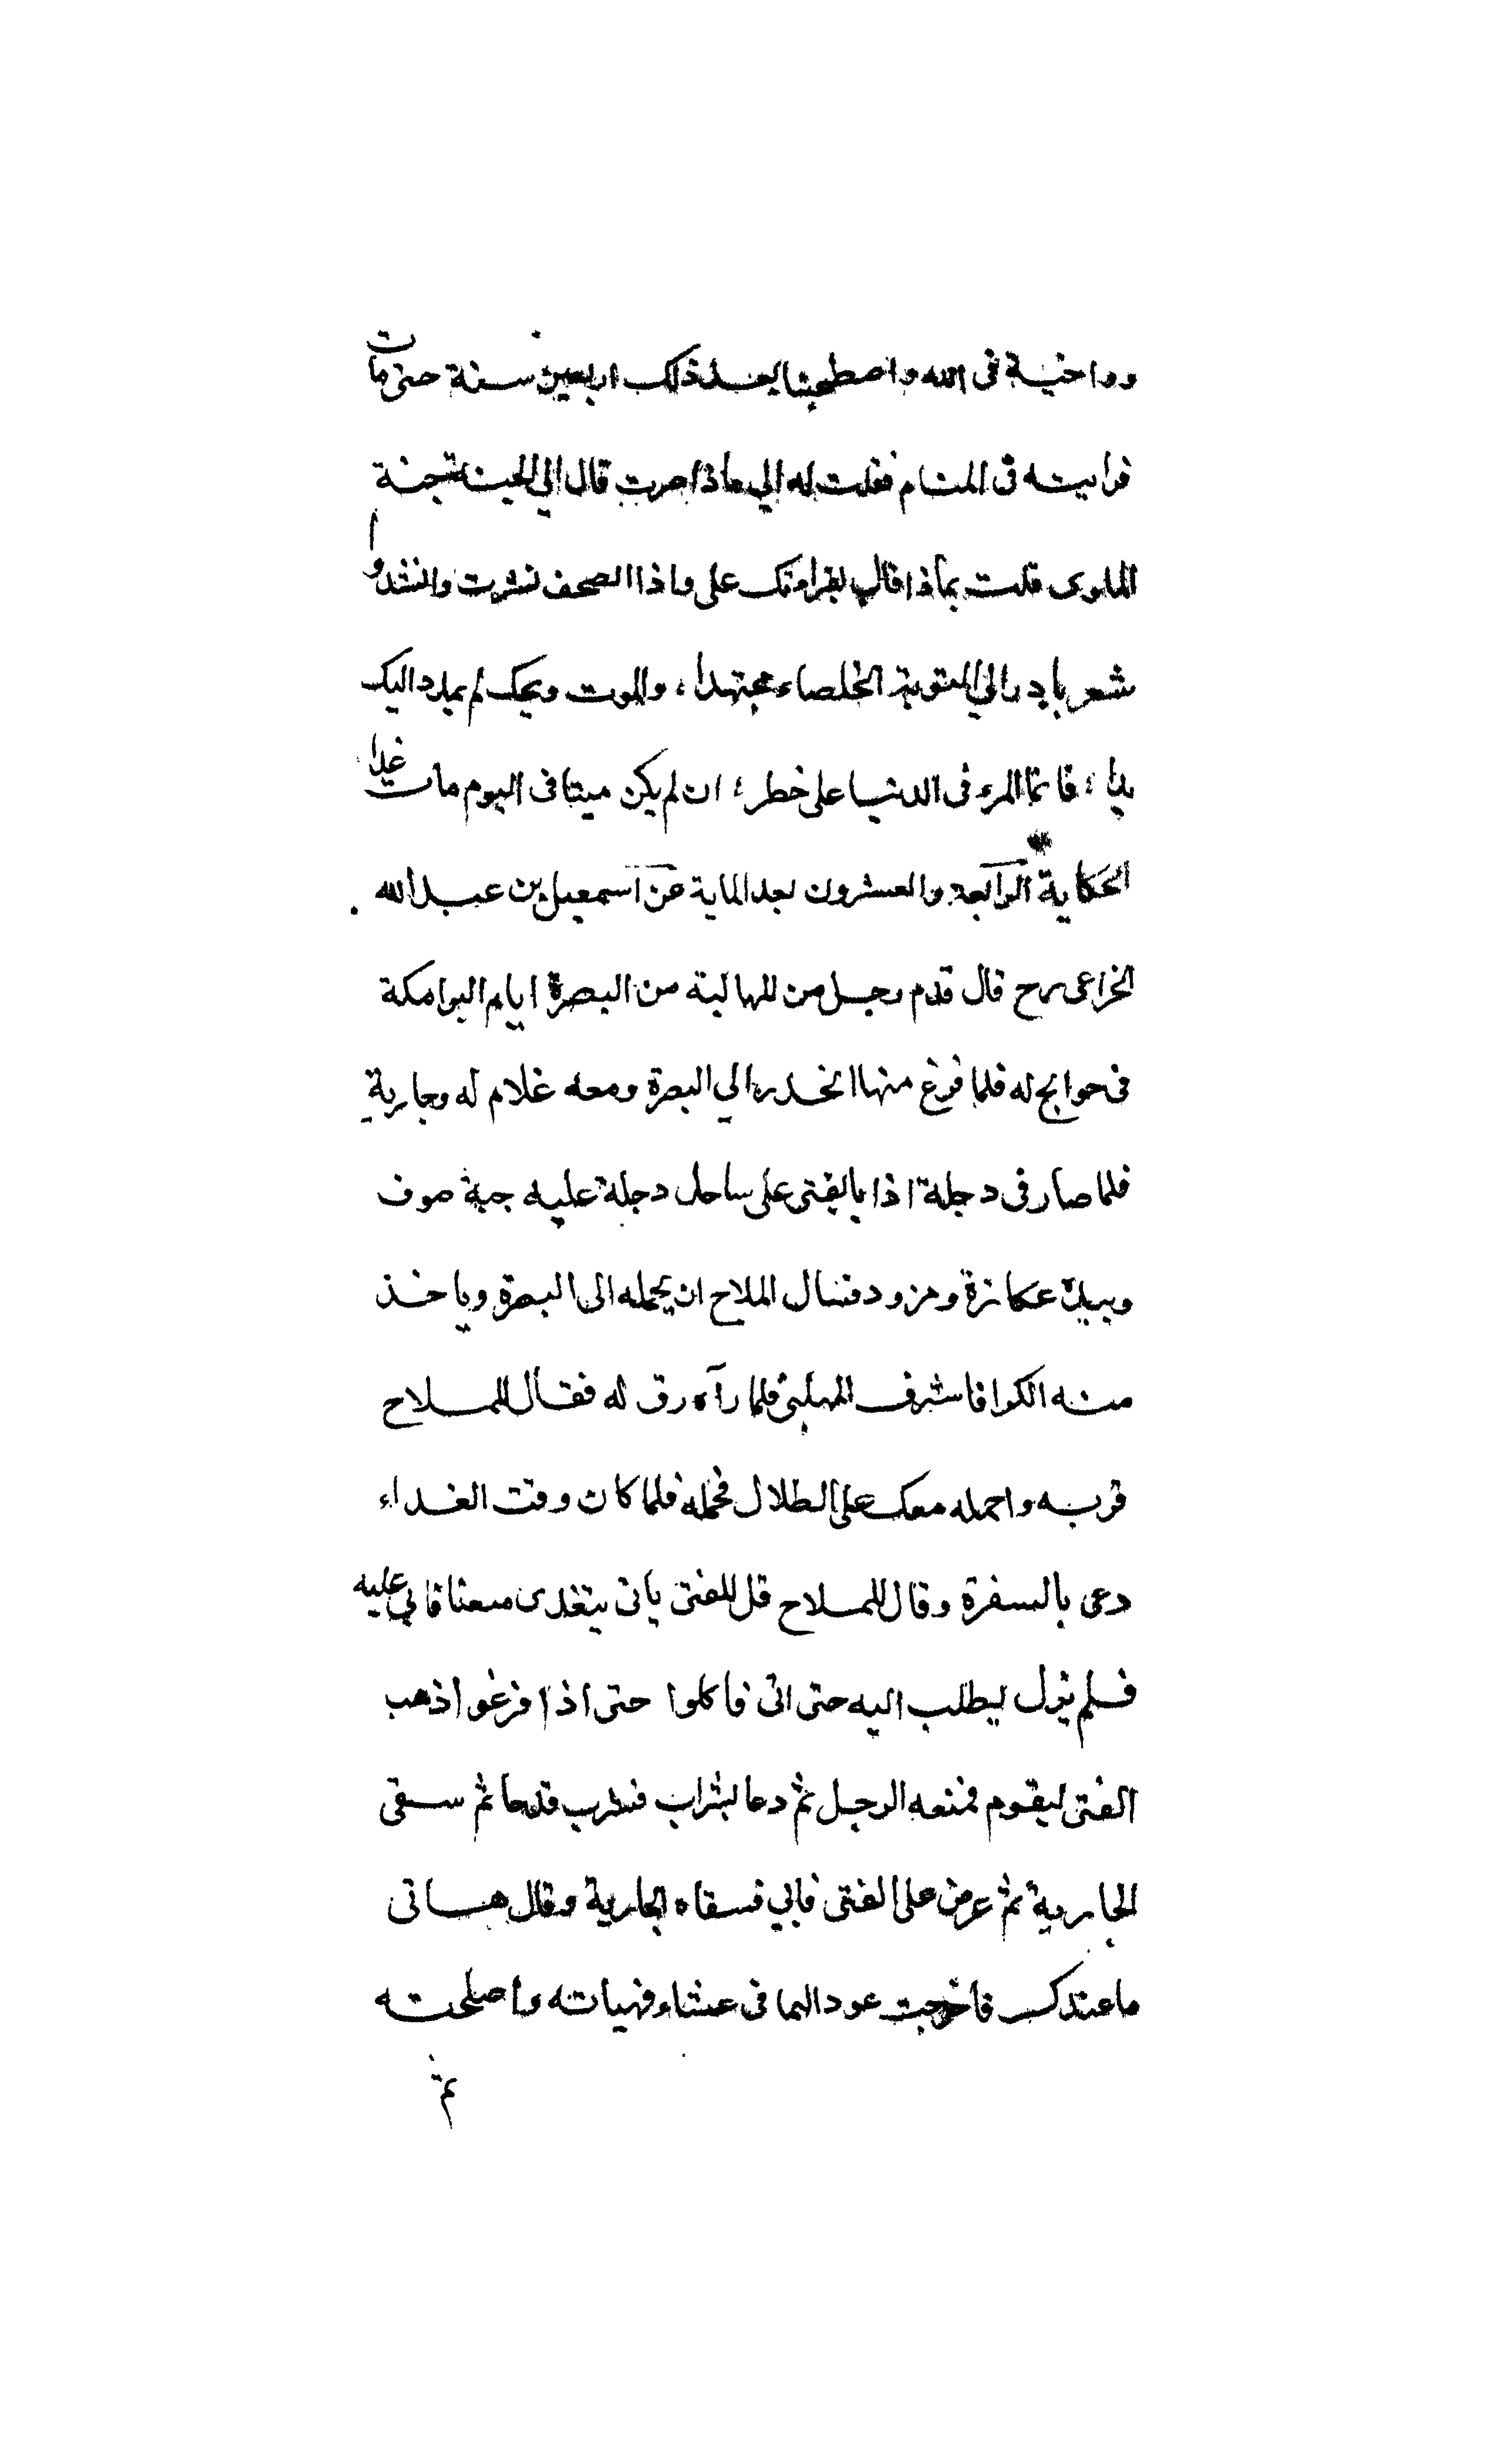 وواخية فى الله واصطحبنا بعد ذلك اربعين سنة حتى مات
فرايته فى المنام فقلت له الي ماذا صرت قال الي الجنة جنة
الماوى قلت بماذا قال بقراءتك على واذا الصحف نشرت وانشدوا
شعر بادر الي التوبة الخلصاء مجتهدا ، والموت ويحك لم يمدد اليك
يدا ؛ فانما المرء فى الدنيا على خطر ؛ ان لم يكن ميتا فى اليوم مات غدا
الحكاية الرابعة والعشرون بعد الماية عن اسمعيل بن عبد الله
الخزاعى رح قال قدم رجل من المهالبة من البصرة ايام البرامكة
فى حوايج له فلما فرغ منها انحدر الي البصرة ومعه غلام له وجارية
فلما صار فى دجلة اذا بالفتى على ساحل دجلة عليه جبة صوف
وبيده عكازة ومزود فسال الملاح ان يحمله الى البصرة وياخذ
منه الكرا فاشرف المهلبى فلما رآه رق له فقال للملاح
قربه واحمله معك على الظلال فحمله فلما كان وقت الغداء
دعى بالسفرة وقال للملاح قل للفتى ياتى يتغدى معنا فابي عليه
فلم يزل يطلب اليه حتى اتى فاكلوا حتى اذا فرغوا ذهب
الفتى ليقوم فمنعه الرجل ثم دعا بشراب فشرب قدحا ثم سقى
الجارية ثم عرض على الفتى فابي فسقاه الجارية وقال هاتى
ما عندك فاخرجت عودا لها فى عشاء فهياته واصلحته
ثم